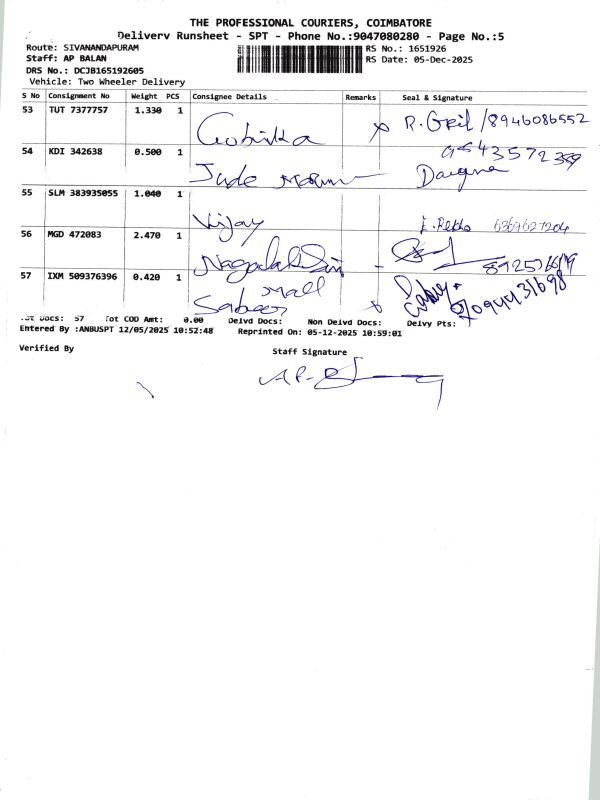 THE PROFESSIONAL COURIERS, COIMBATORE
Delivery Runsheet - SPT - Phone No.:9047080280 - Page No.:5
Route: SIVANANDAPURAM RS No.: 1651926
Staff: AP BALAN RS Date: 05-Dec-2025
DRS No.: DCJB165192605
Vehicle: Two Wheeler Delivery
S No Consignment No Weight PCS Consignee Details Remarks Seal & Signature
53 TUT 7377757 1.330 1
R. /8946086552
54 KDI 342638 0.500 1
Jude
55 SLM 383935055 1.040 1
Vijay 6369627204
56 MGD 472083 2.470 1
57 IXM 509376396 0.420 1
Mall
Sabeer
Docs: 57 Tot COD Amt: 0.00 Delvd Docs: Non Delvd Docs: Delvy Pts:
Entered By :ANBUSPT 12/05/2025 10:52:48 Reprinted On: 05-12-2025 10:59:01
Verified By Staff Signature